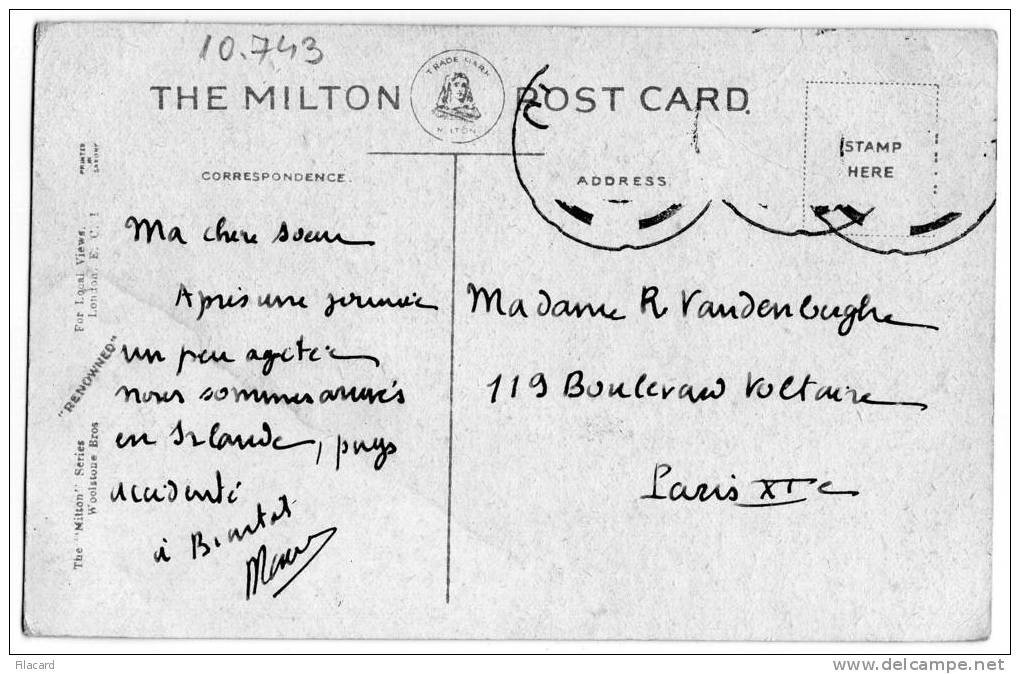 10.743
THE MILTON POST CARD.
TRADE MARK
MILTON
CORRESPONDENCE.
ADDRESS
STAMP
HERE
PRINTED
IN
SAXONY
For Local Views.
London. E. C. 1
"RENOWNED"
The "Milton" Series
Woolstone Bros
Ma chère soeur
Après une journée
un peu agitée
nous sommes arrivés
en Irlande, pays
accidenté
à Bientot
Madame R Vandenbughe
119 Boulevard Voltaire
Paris XIe
filacard
www.delcampe.net